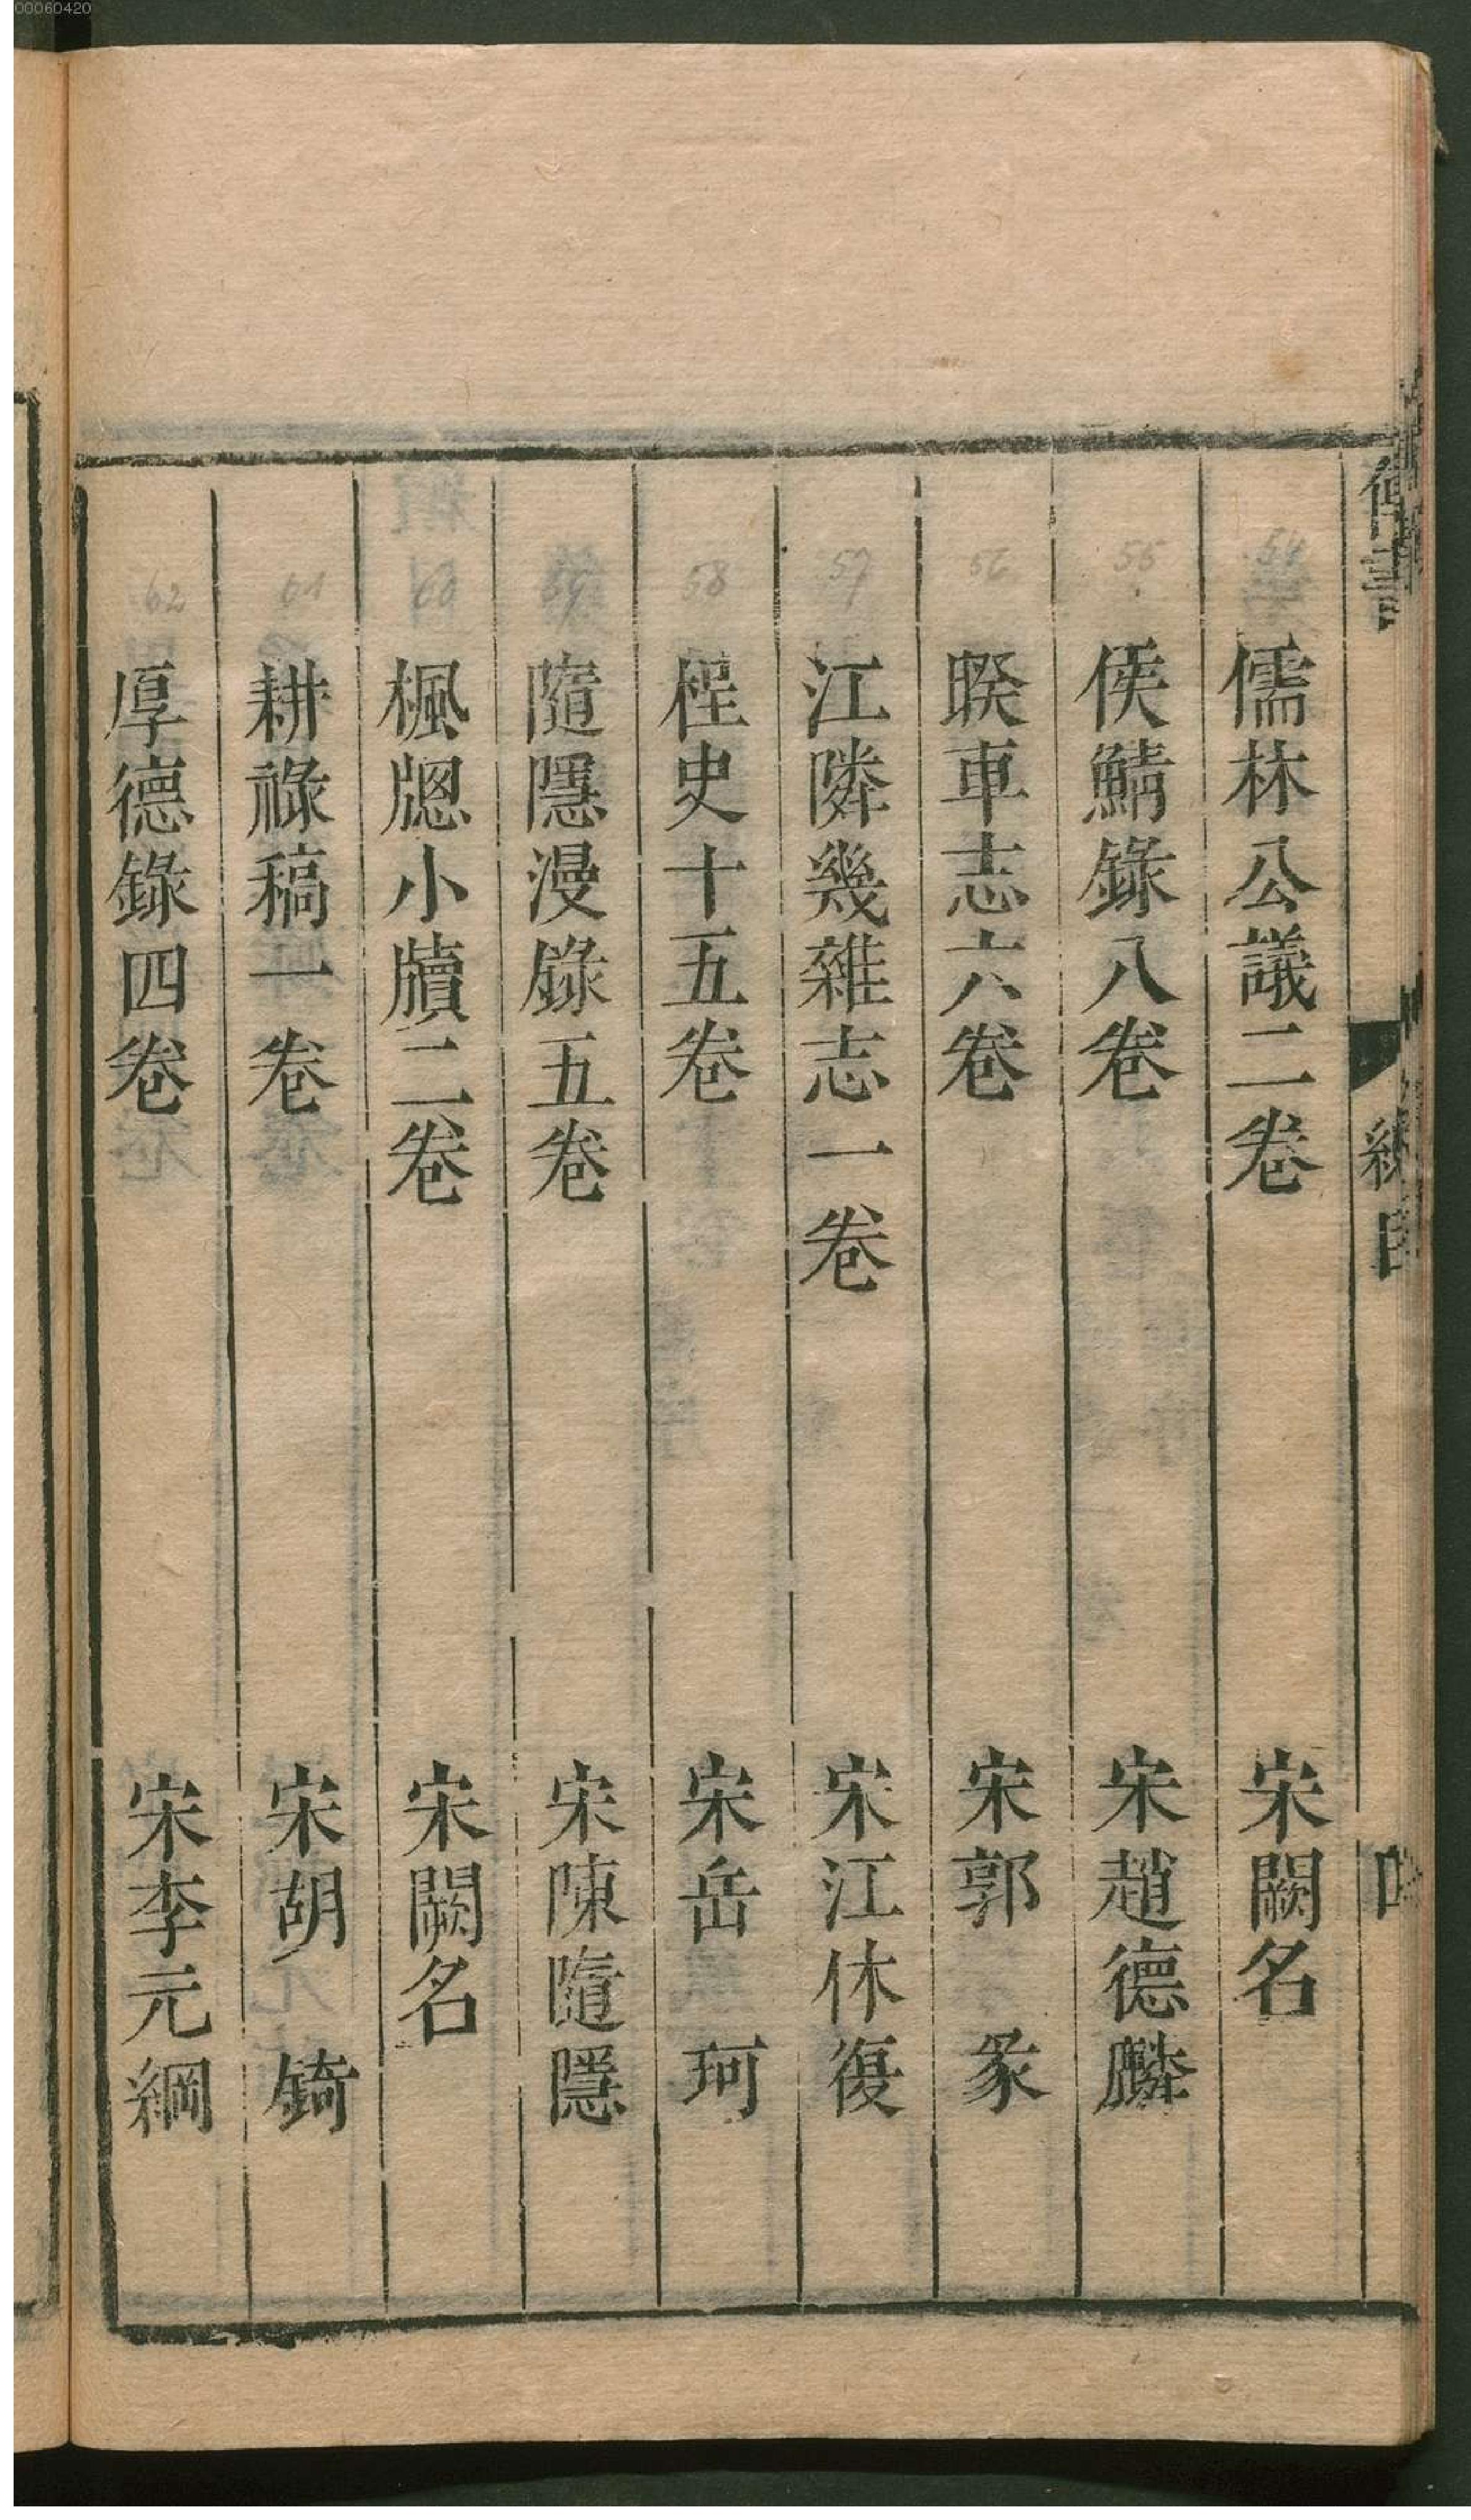 00060420
54
儒林公議二卷 宋闕名
55
侯鯖錄八卷 宋趙德麟
56
暌車志六卷 宋郭彖
57
江隣幾雜志一卷 宋江休復
58
桯史十五卷 宋岳珂
59
隨隱漫錄五卷 宋陳隨隱
60
楓牕小牘二卷 宋闕名
61
耕祿稿一卷 宋胡錡
62
厚德錄四卷 宋李元綱